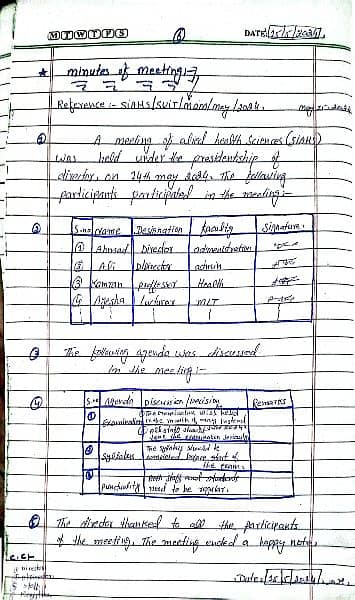 M T W T F S
6
DATE: 25/5/2024
* minutes of meeting :-
Reference :- SIAHS/SUIT/mom/may/2024.
① A meeting of alied health Sciences (SIAHS)
was held under the presidentship of
director, on 24th may 2024. The following
participants participated in the meeting :-
②
S.no Name Designation faculty Signature.
① Ahmad Director administration
② Ali D/Director admin
③ Kamran professor Health
④ Ayesha lecturer MIT
③ The following agenda was discussed
in the meeting :-
④
S.no Agenda Discussion/Decision Remarks
① Examination ① The examination will be held
in the month of
② All staff should
the examination seriously
② Syllabus The syllabus should be
completed before start of
the exam.
③ punctuality Both staff and students
need to be regular.
⑤ The director thanked to all the participants
of the meeting. The meeting ended a happy note.
C.C to
① Director
Date: 25/5/2024